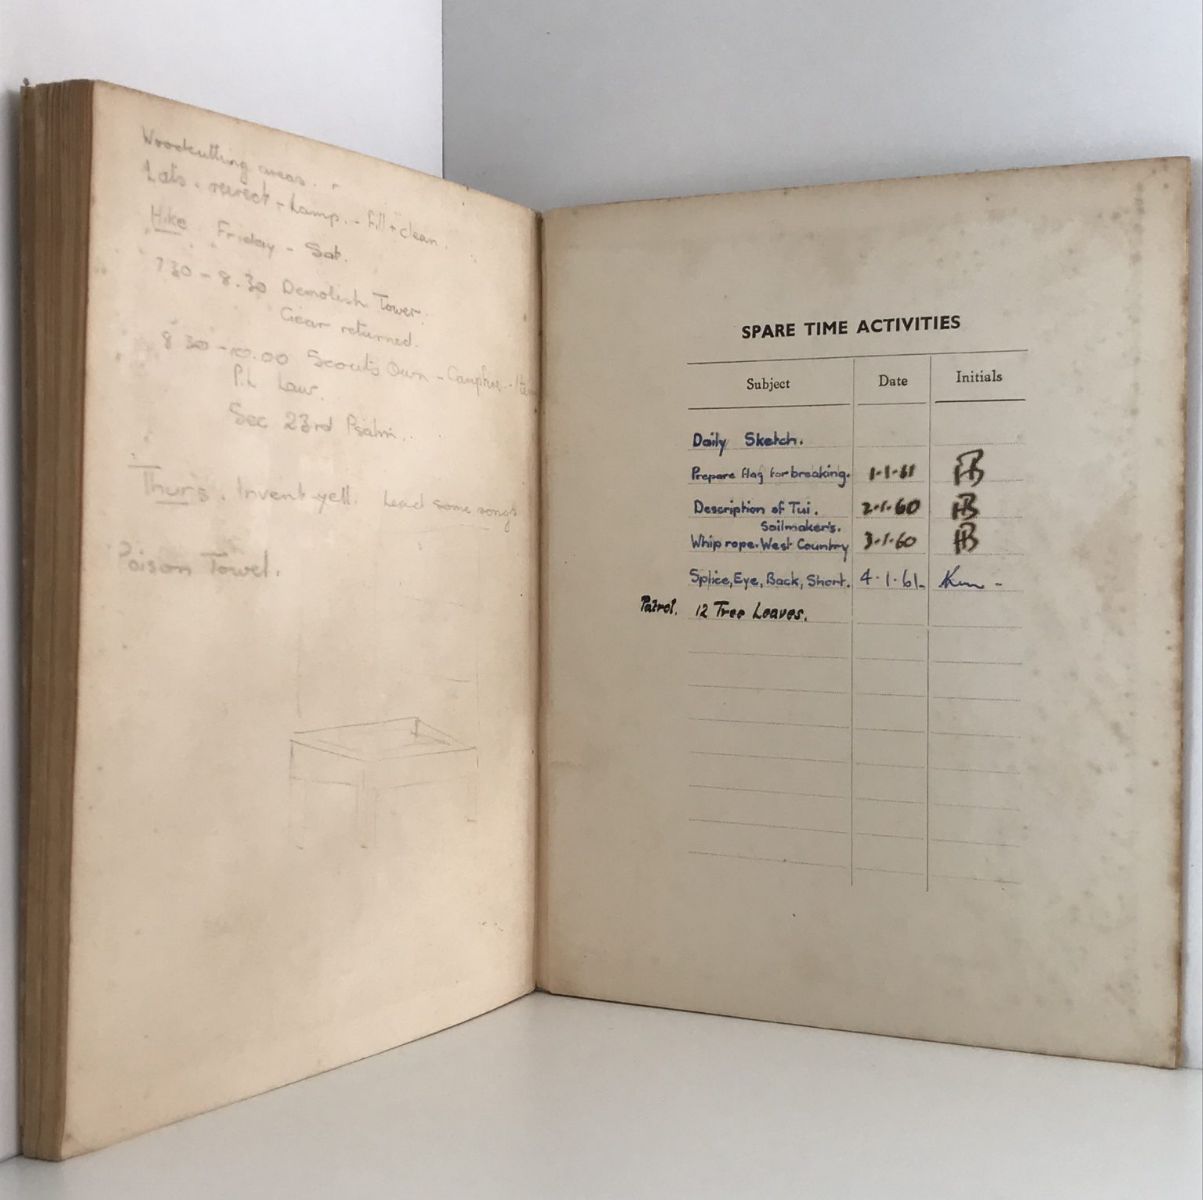 Woodcutting areas.
Lats. - Lamp. - fill + clean.
Hike. Friday - Sat.
7.30 - 8.30 Demolish Tower.
Gear returned.
8.30 - 10.00 Scout's Own - Campfire -
P.L Law.
Sec 23rd Psalm.
Thurs. Invent yell. Lead some songs
Poison Towel.
SPARE TIME ACTIVITIES
Subject Date Initials
Daily Sketch.
Prepare flag for breaking. 1-1-61 HB
Description of Tui. 2-1-60 HB
Sailmaker's.
Whip rope. West Country 3-1-60 HB
Splice, Eye, Back, Short. 4-1-61-
Patrol. 12 Tree Leaves.